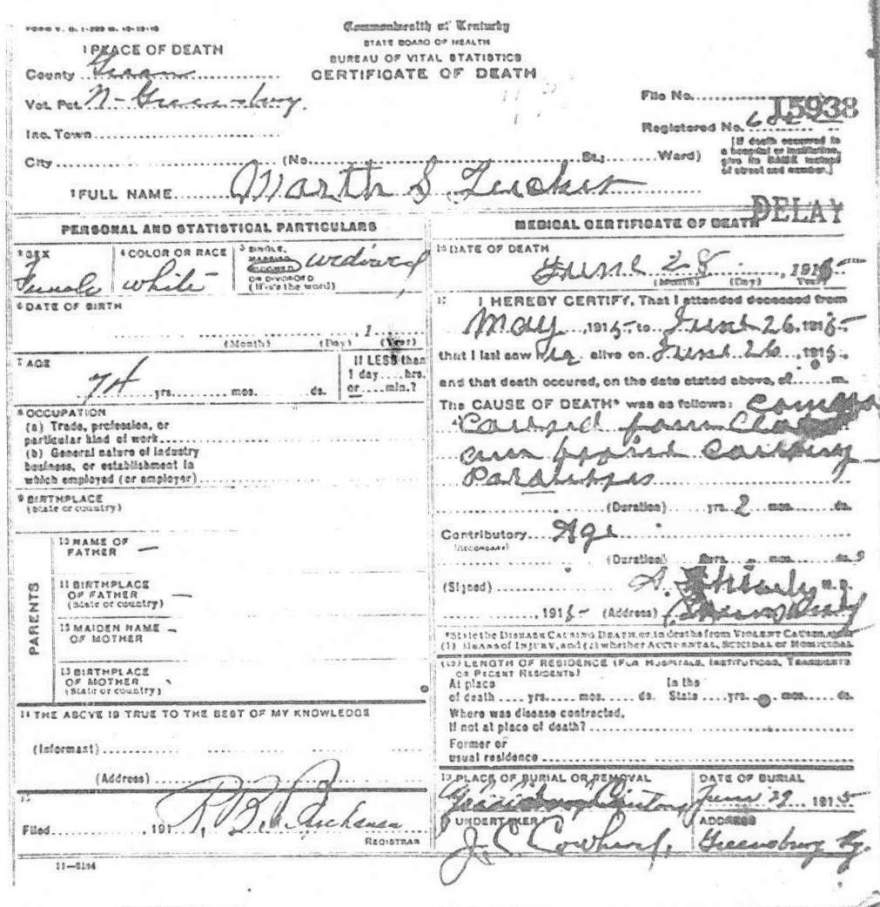 FORM V. S. 1-
Commonwealth of Kentucky
STATE BOARD OF HEALTH
BUREAU OF VITAL STATISTICS
CERTIFICATE OF DEATH
1 PLACE OF DEATH
County Green
Vot. Pct. N-Greensburg
Inc. Town
City (No. St.; Ward)
File No. 15938
Registered No.
[If death occurred in a hospital or institution, give its NAME instead of street and number.]
2 FULL NAME Marth S Tucker
DELAY
PERSONAL AND STATISTICAL PARTICULARS
3 SEX Female
4 COLOR OR RACE white
5 SINGLE, MARRIED, WIDOWED OR DIVORCED (Write the word) widowed
6 DATE OF BIRTH
(Month) (Day) , 1 (Year)
7 AGE
74 yrs. mos. ds.
If LESS than 1 day hrs. or min.?
8 OCCUPATION
(a) Trade, profession, or
particular kind of work
(b) General nature of industry
business, or establishment in
which employed (or employer)
9 BIRTHPLACE
(State or country)
PARENTS
10 NAME OF FATHER —
11 BIRTHPLACE OF FATHER (State or country) —
12 MAIDEN NAME OF MOTHER -
13 BIRTHPLACE OF MOTHER (State or country)
14 THE ABOVE IS TRUE TO THE BEST OF MY KNOWLEDGE
(Informant)
(Address)
15
Filed , 191 R. B.
REGISTRAR
11-5184
MEDICAL CERTIFICATE OF DEATH
16 DATE OF DEATH
June 28 , 1915
(Month) (Day) (Year)
17 I HEREBY CERTIFY, That I attended deceased from
May , 1915 to June 26, 1915
that I last saw alive on June 26 , 1915
and that death occured, on the date stated above, at m.
The CAUSE OF DEATH* was as follows:
Caused from
Causing
Paralysis
(Duration) yrs. 2 mos. ds.
Contributory Age
(SECONDARY)
(Duration) yrs. mos. ds.
(Signed) M. D.
, 1915- (Address)
*State the DISEASE CAUSING DEATH, or, in deaths from VIOLENT CAUSES, state
(1) MEANS OF INJURY, and (2) whether ACCIDENTAL, SUICIDAL or HOMICIDAL
(18) LENGTH OF RESIDENCE (FOR HOSPITALS, INSTITUTIONS, TRANSIENTS
OR RECENT RESIDENTS)
At place of death yrs. mos. ds. In the State yrs. mos. ds.
Where was disease contracted,
If not at place of death?
Former or
usual residence
19 PLACE OF BURIAL OR REMOVAL
DATE OF BURIAL
June 29 1915
20 UNDERTAKER
ADDRESS
J. C. Cowherd, Greensburg Ky.